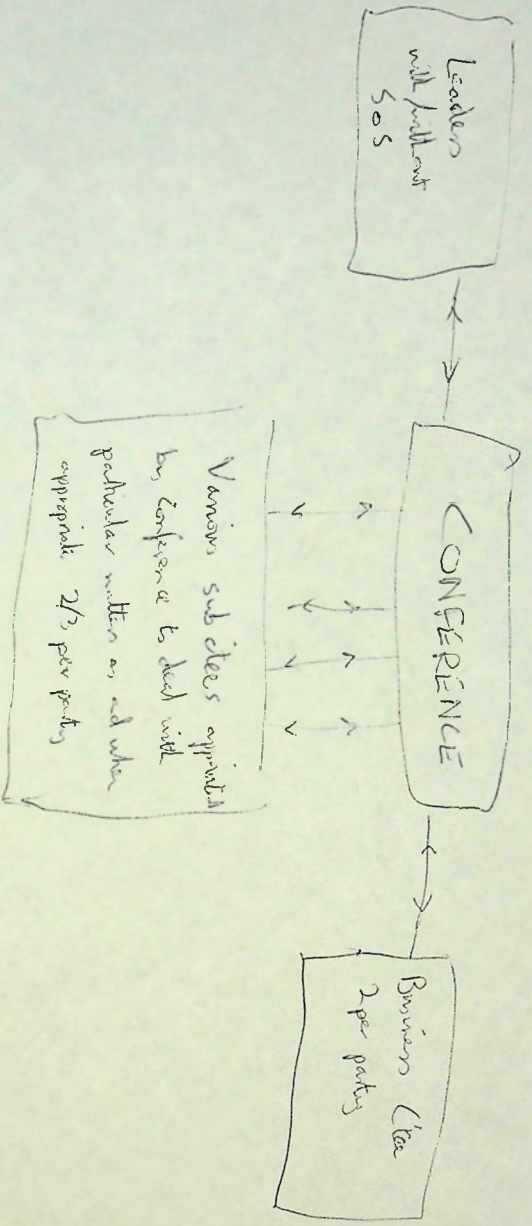 Leaders
with/without
SOS
CONFERENCE
Business C'tee
2 per party
Various sub ctees appointed
by Conference to deal with
particular matters as and when
appropriate 2/3 per party